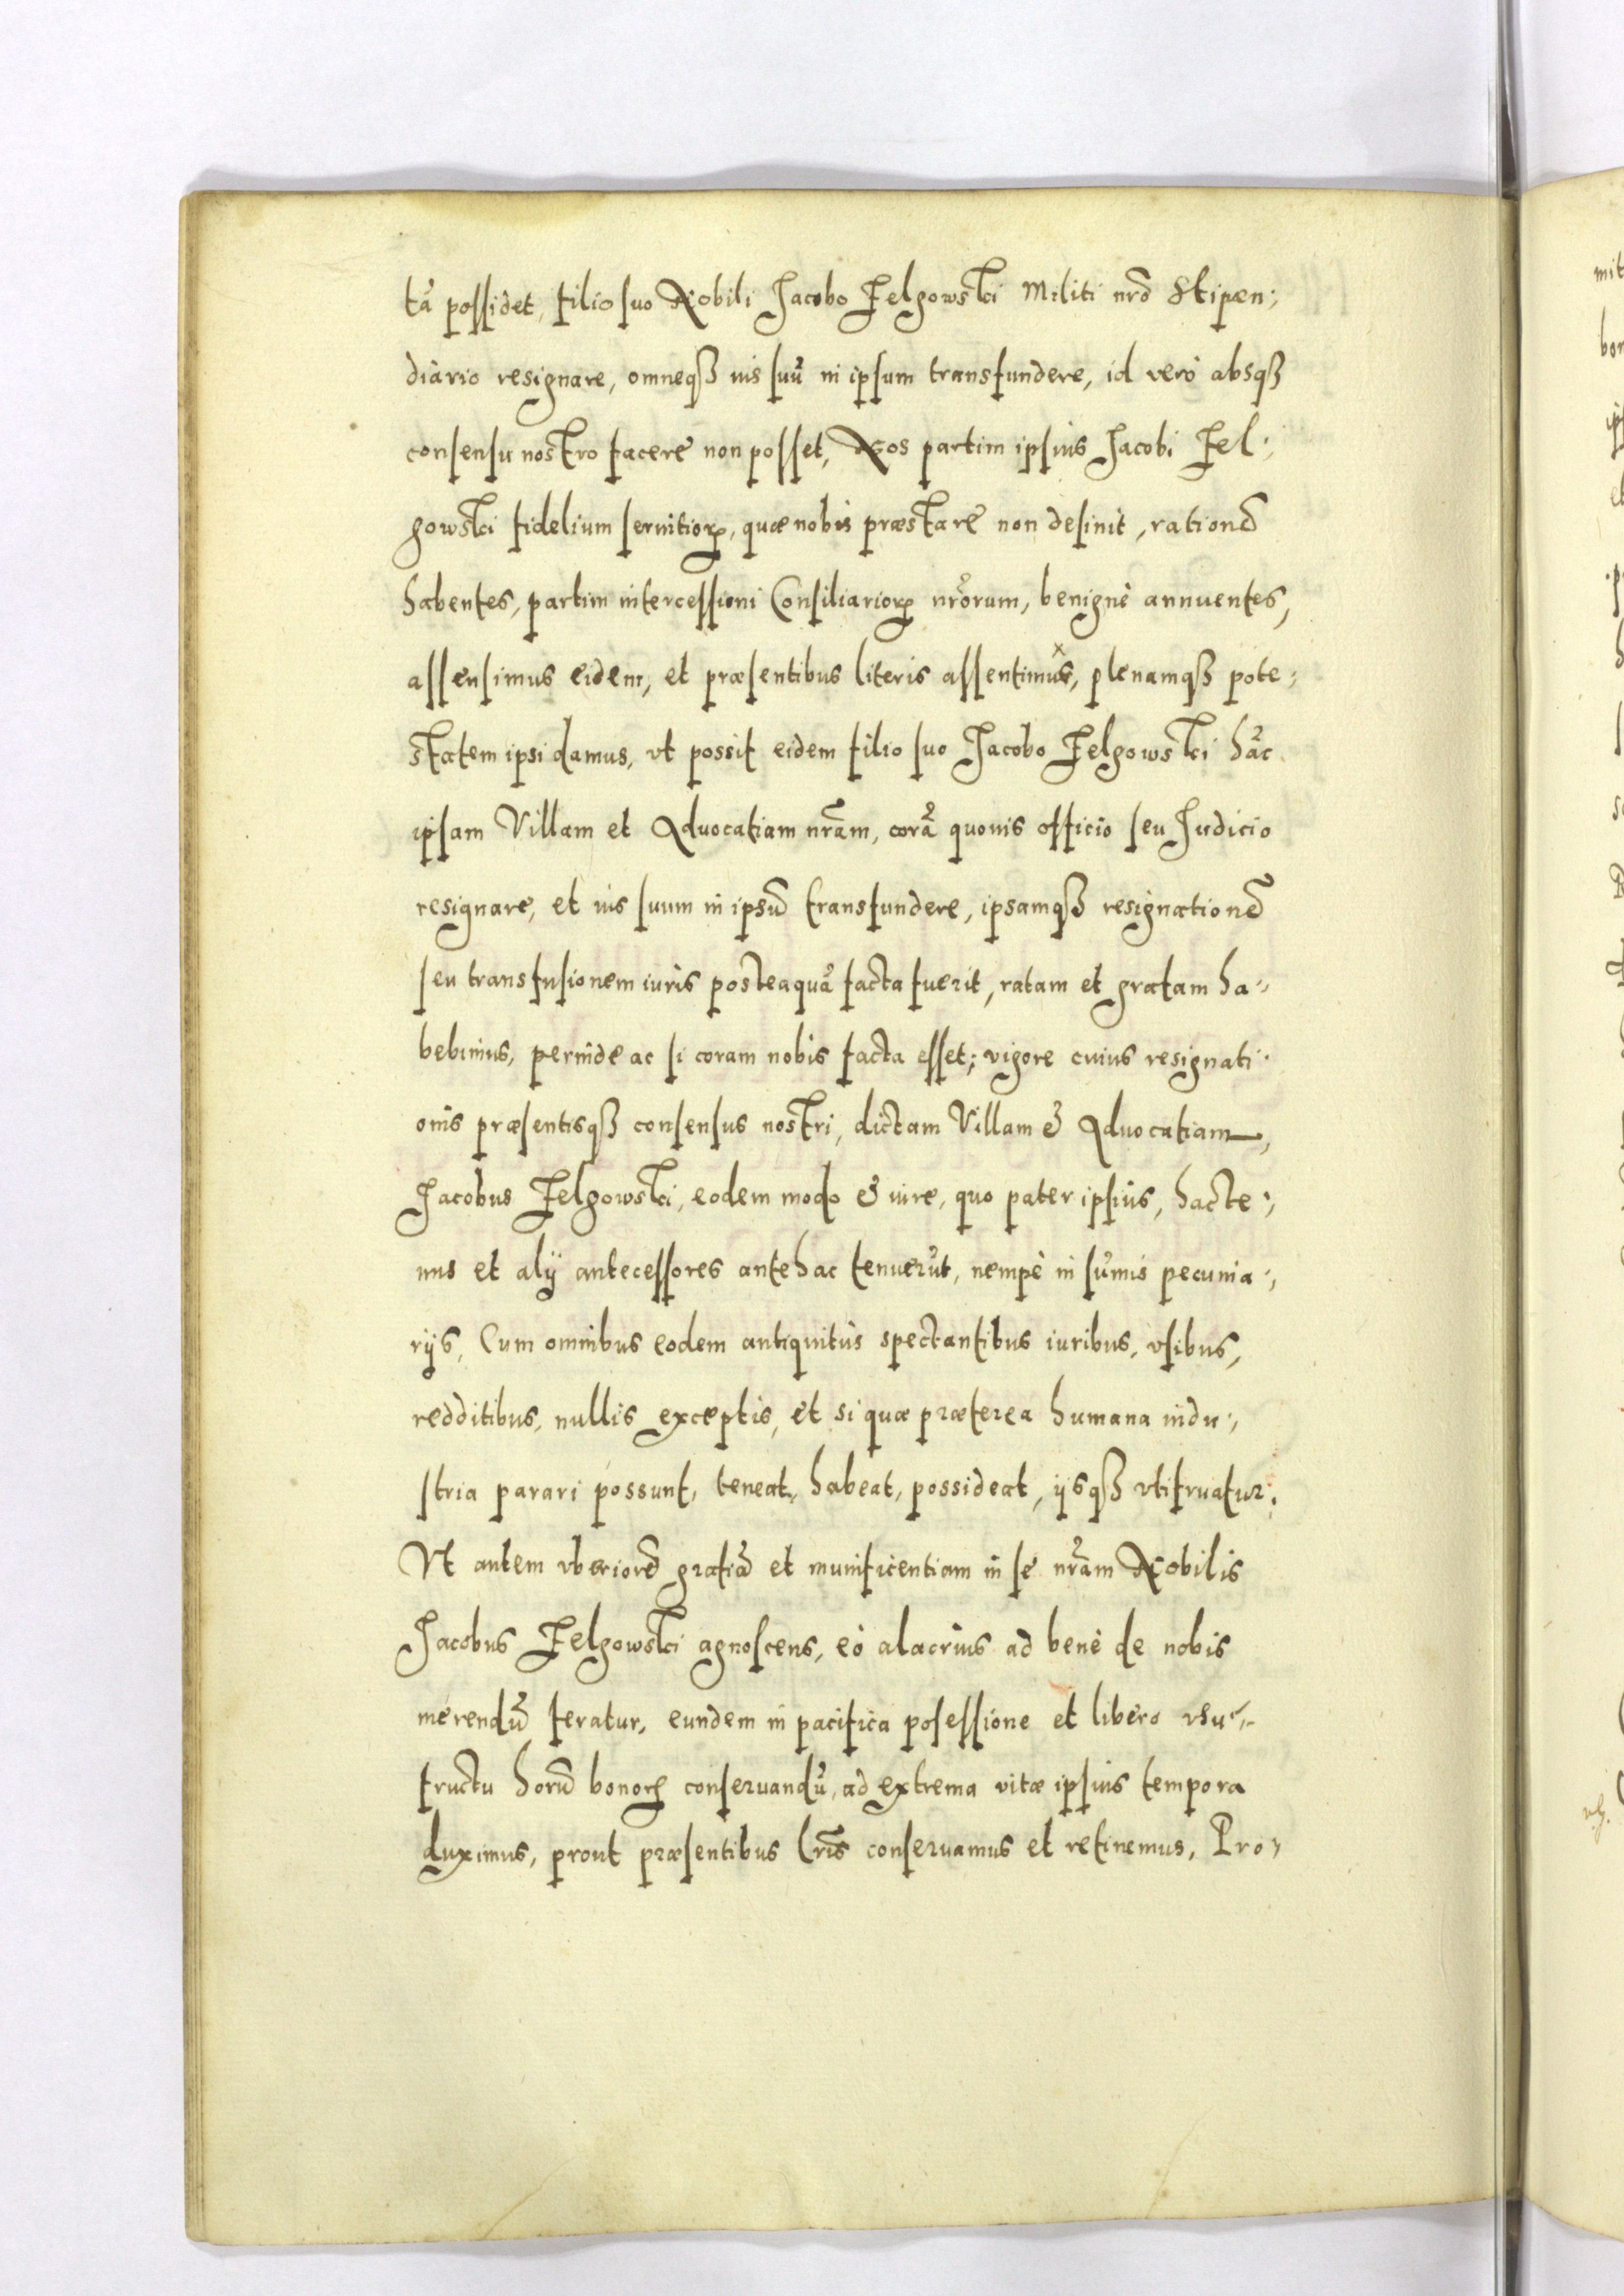 tã possidet, filio suo Nobili Jacobo Felgowski Militi nrõ Stipen:
diario resignare, omneqȝ ius suũ in ipsum transfundere, id verò absqȝ
consensu nostro facere non posset, Nos partim ipsius Jacobi Fel:
gowski fidelium seruitioꝝ, quæ nobis præstare non desinit, rationẽ
habentes, partim intercessioni Consiliarioꝝ nrõrum, benignè annuentes,
assensimus eidem, et præsentibus literis assentimus, plenamqȝ pote:
statem ipsi damus, vt possit eidem filio suo Jacobo Felgowski hãc
ipsam Villam et Aduocatiam nrãm, corã quouis officio seu Judicio
resignare, et ius suum in ipsũ transfundere, ipsamqȝ resignationẽ
seu transfusionem iuris posteaquã facta fuerit, ratam et gratam ha:
bebimus, perinde ac si coram nobis facta esset; vigore cuius resignati:
onis præsentisqȝ consensus nostri, dictam Villam & Aduocatiam,
Jacobus Felgowski, eodem modo & iure, quo pater ipsius, hacte:
nus et alij antecessores antehac tenuerũt, nempè in sũmis pecunia:
rijs, Cum omnibus eodem antiquitùs spectantibus iuribus, vsibus,
redditibus, nullis exceptis, et si quæ præterea humana indu:
stria parari possunt, teneat, habeat, possideat, ijsqȝ vtifruatur.
Vt autem vberiorẽ gratiã et munificentiam in se nrãm Nobilis
Jacobus Felgowski agnoscens, eò alacrius ad benè de nobis
merendũ feratur, eundem in pacifica posessione et libero vsu:
fructu horũ bonoꝝ conseruandũ, ad extrema vitæ ipsius tempora
duximus, prout præsentibus Lrĩs conseruamus et retinemus, Pro: